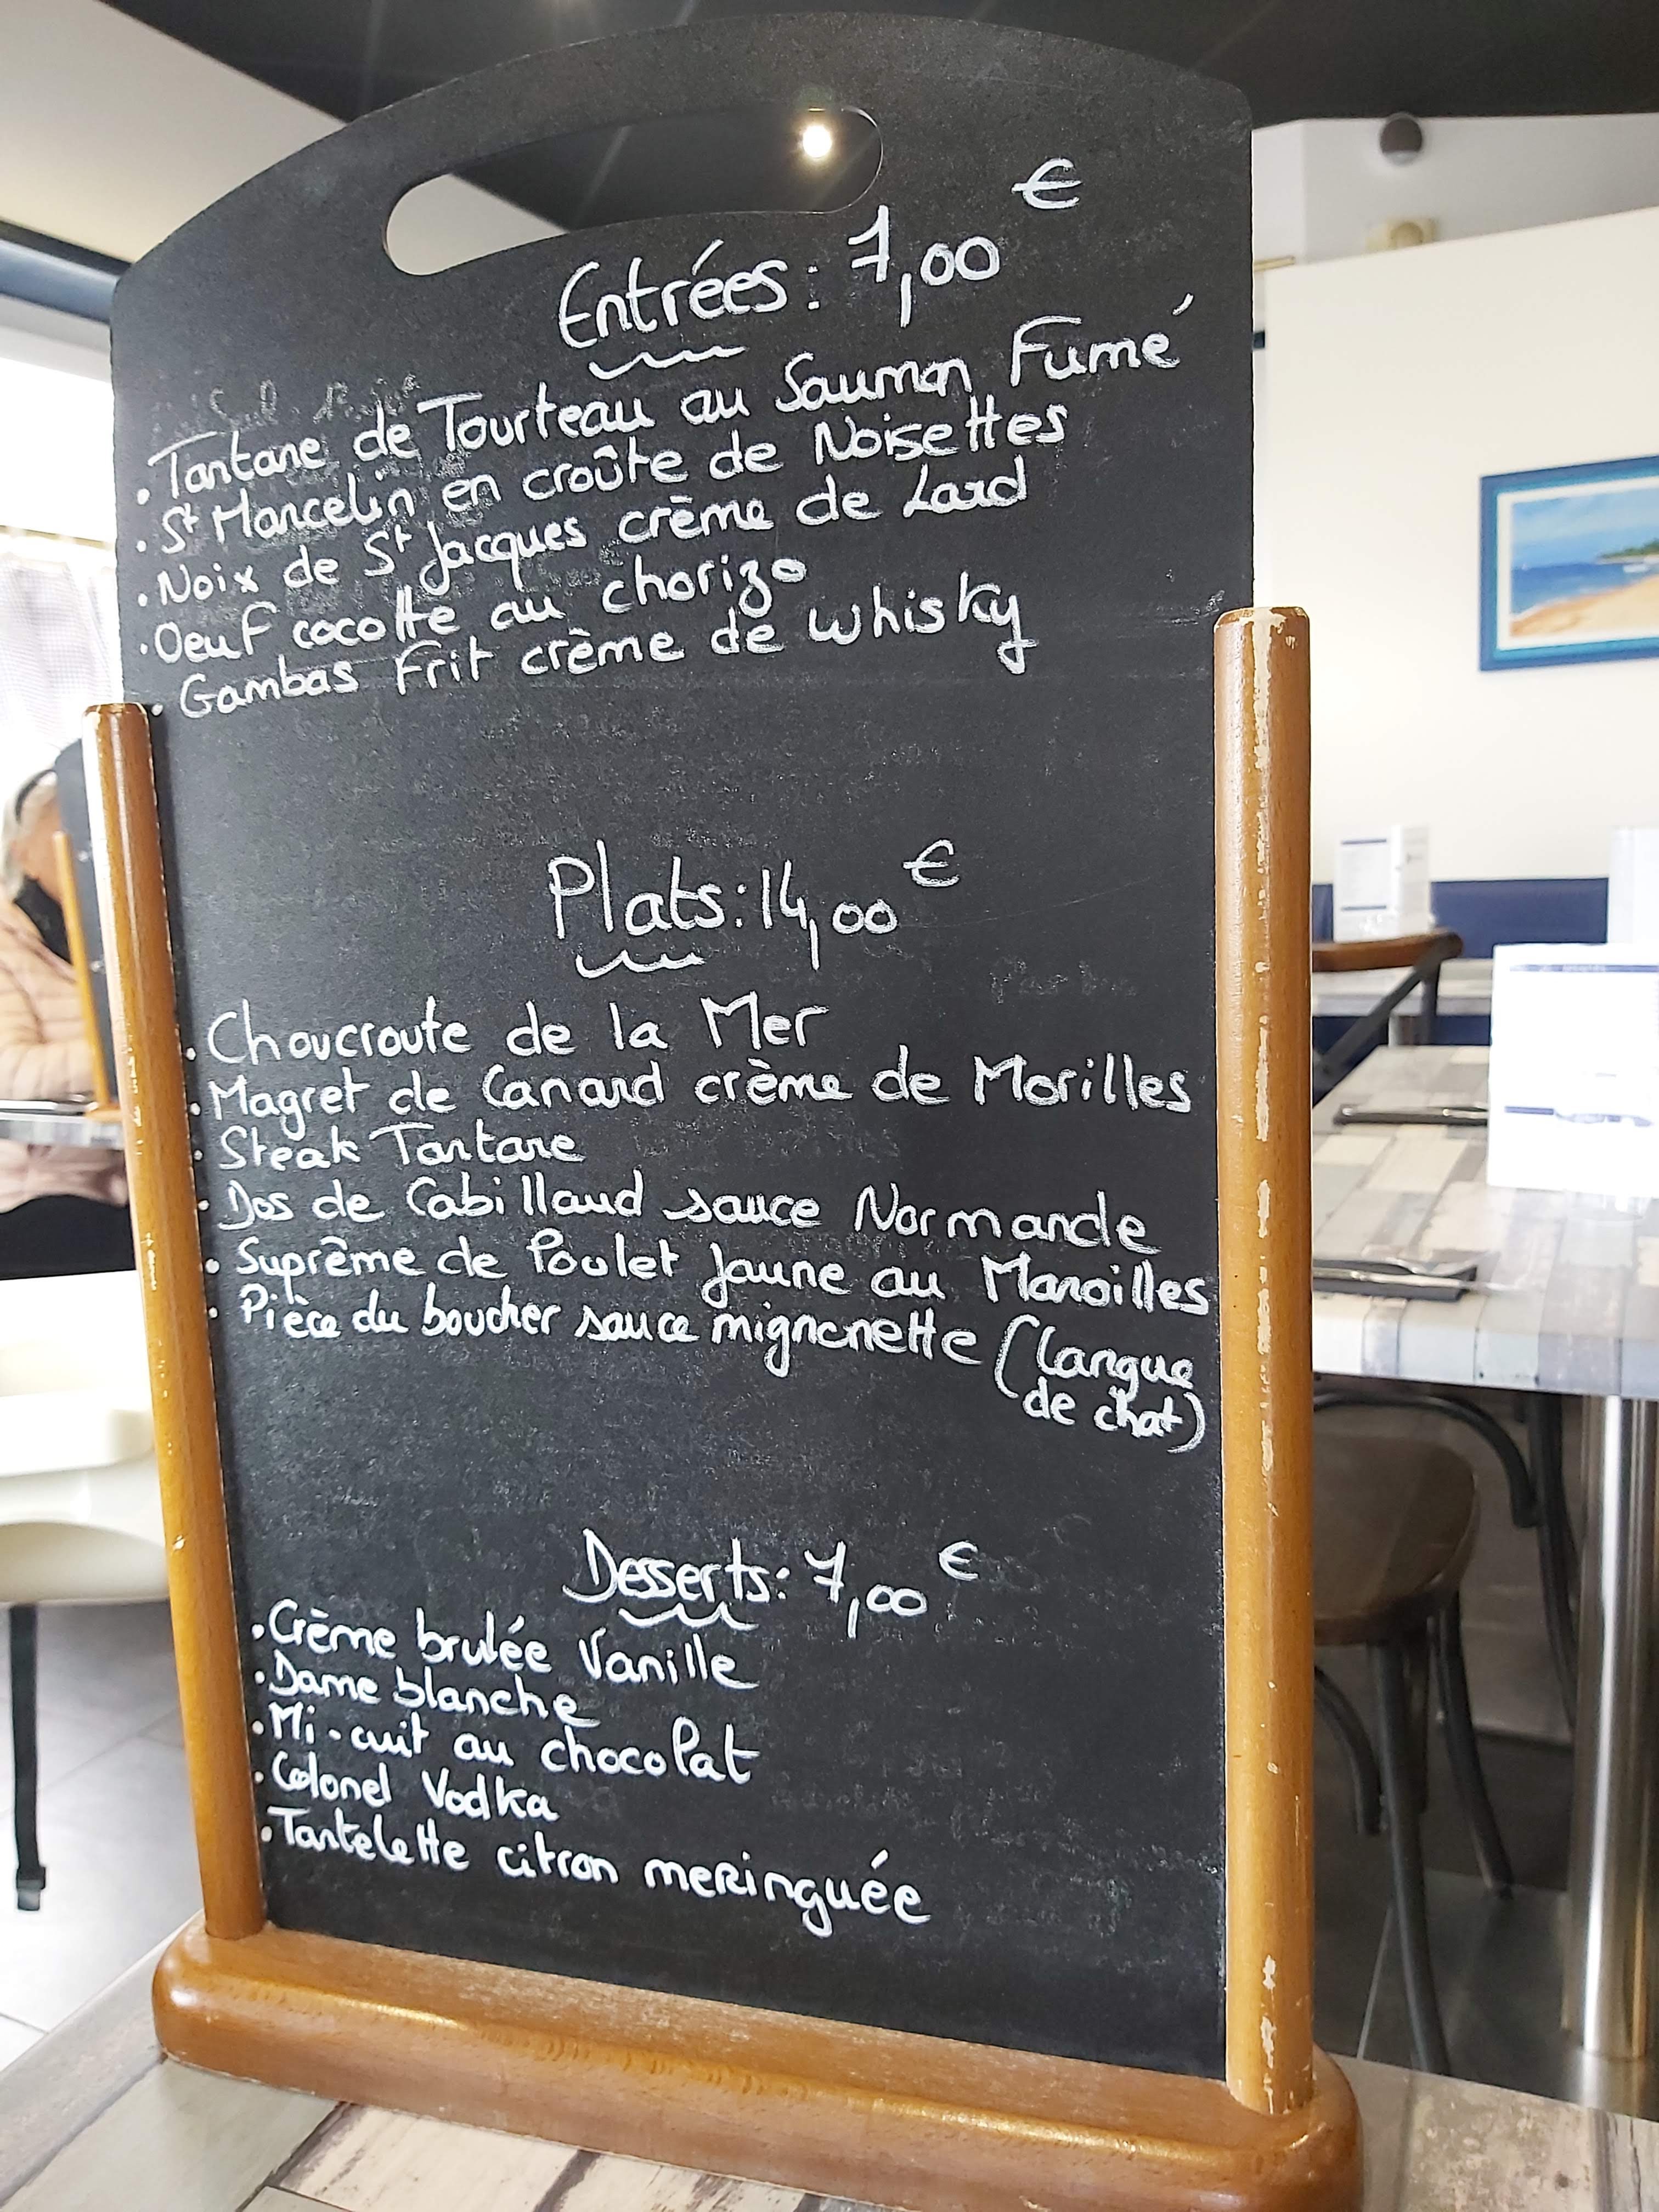 Entrées: 7,00 €
. Tartare de Tourteau au Saumon Fumé
. St Marcelin en croûte de Noisettes
. Noix de St Jacques crème de Lard
. Oeuf cocotte au chorizo
. Gambas Frit crème de whisky
Plats: 14,00 €
. Choucroute de la Mer
. Magret de Canard crème de Morilles
. Steak Tartare
. Dos de Cabillaud sauce Normande
. Suprême de Poulet Jaune au Maroilles
. Pièce du boucher sauce mignonette (langue
de chat)
Desserts: 7,00 €
. Crème brulée Vanille
. Dame blanche
. Mi-cuit au chocolat
. Colonel Vodka
. Tartelette citron meringuée